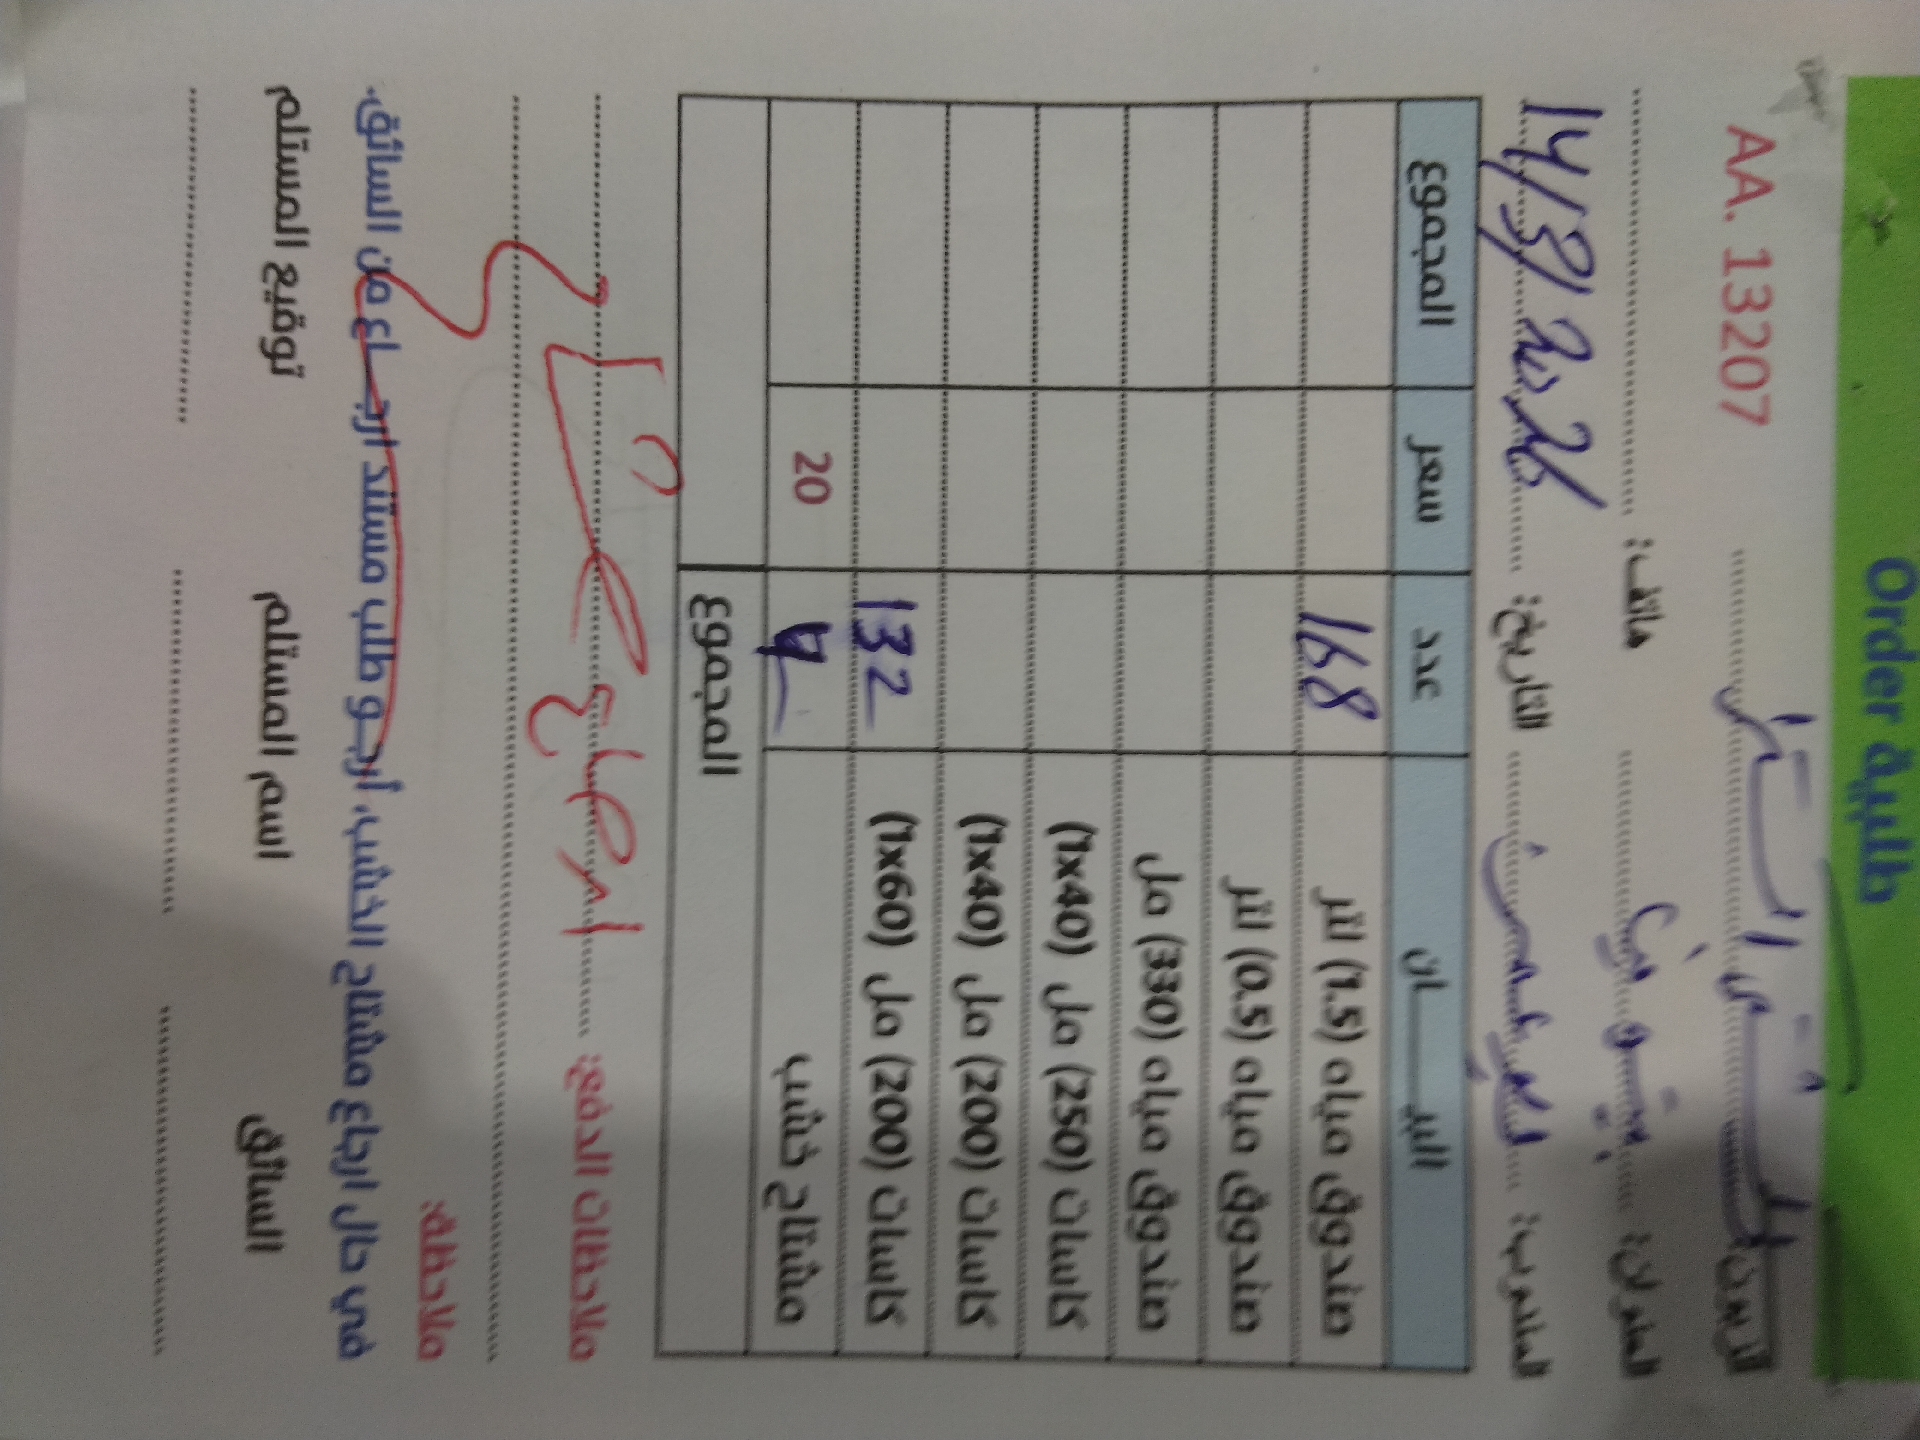 طلبية Order
AA. 13207
الزبون:
العنوان: هاتف:
المندوب: التاريخ: 14/3/2026
البيـــــان عدد سعر المجموع
صندوق مياه (1.5) لتر 168
صندوق مياه (0.5) لتر
صندوق مياه (330) مل
كاسات (250) مل (1x40)
كاسات (200) مل (1x40)
كاسات (200) مل (1x60) 132
مشتاح خشب 20
المجموع
ملاحظات الدفع: ارجاع
ملاحظة:
في حال ارجاع مشتاح الخشب، أرجـو طلب مستند ارجـــاع من السائق.
السائق اسم المستلم توقيع المستلم